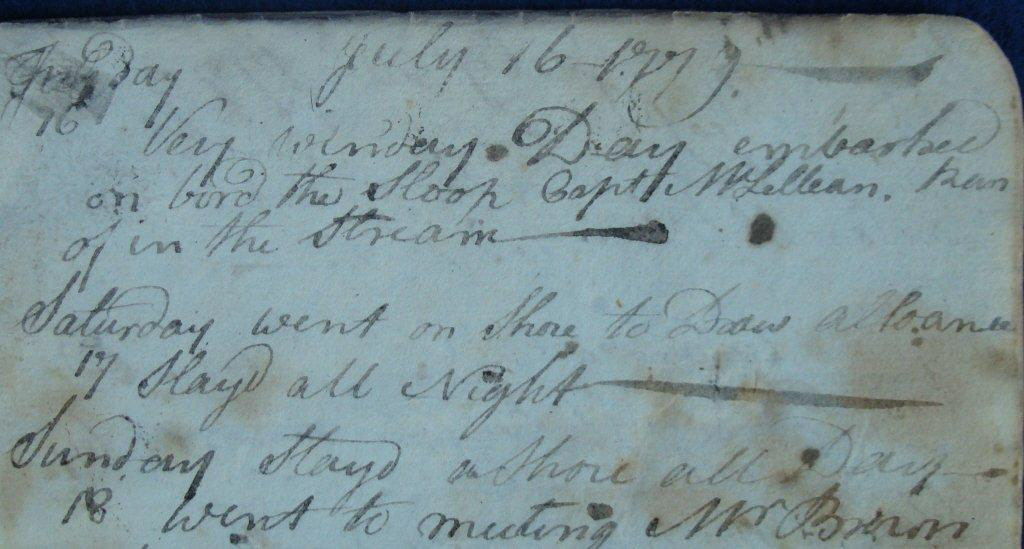 Friday July 16 1779
16 Very winday Day embarked
on bord the Sloop Capt McLellean. Ran
of in the Stream
Saturday went on Shore to Draw allowance
17 Stayd all Night
Sunday Stayd a Shore all Day
18 went to meeting Mr Brown